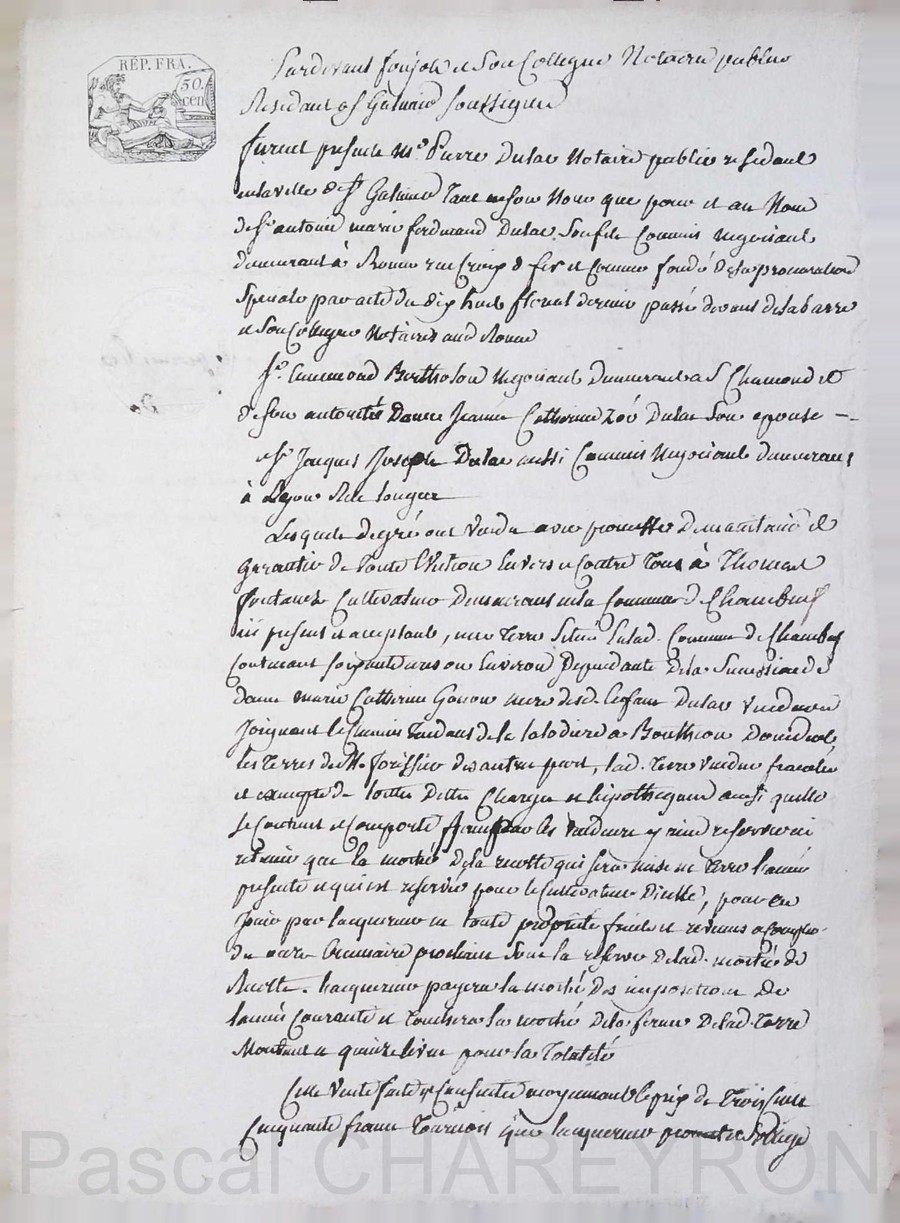 RÉP. FRA.
50.
cen
Pardevant et Son Collegue Notaire publics
Residant a St Galmier soussignés
furent presents Mre. Pierre Dulac Notaire public residant
en la ville de St Galmier tant en son Nom que pour et au Nom
de Sr antoine marie ferdinand Dulac Son fils Commis Negotiant
Demeurant à Rouen rue Croix de fer et Comme fondé de sa procuration
Speciale par acte du dix huit floreal dernier passé devant Delabarre
et Son Collegue Notaires aud Rouen
Sr. Ennemond Bertholon Negotiant Demeurant a St Chamond et
de Son autorité Dame Jeanne Catherine Zoé Dulac Son epouse —
et Sr Jacques Joseph Dulac aussi Commis Negotiant Demeurant
à Lyon Rue longue
Lesquels de gré ont Vendu avec promesse De maintenir et
garantir de toute Eviction Envers et Contre tous à Thomas
fontanez Cultivateur Demeurant en la Commune de Chambeuf
ici present et acceptant, une terre Située En lad. Commune de Chambeuf
Contenant ou Environ Dependante De la Succession de
dame marie Catherine Gonon mere desd. Enfans Dulac Vendeurs
Joignant le Chemin tendant de la a Bouthéon
les terres de Mr. des autres parts, lad. terre Vendue franche
et exempte de toutes Dettes Charges et hipotheques ainsi quelle
Se Contient et Comporte par les Vendeurs y rien reserver ni
retenir que la moitié de la recolte qui sera mise en terre l'année
presente et qui est reservée pour le Cultivateur D'icelle, pour en
Jouir par lacquereur en toute propriété fruits et revenus a Compter
du onze brumaire prochain Sous la reserve de lad. moitié de
Recolte. lacquereur payera la moitié Des impositions De
lannée Courante et touchera la moitié De la ferme De lad. Terre
Montant a quinze livres pour la Totalité
Cette Vente faite et Consentie moyennant le prix de Trois Cents
Cinquante francs Tournois que lacquereur promet et Soblige
Pascal CHAREYRON